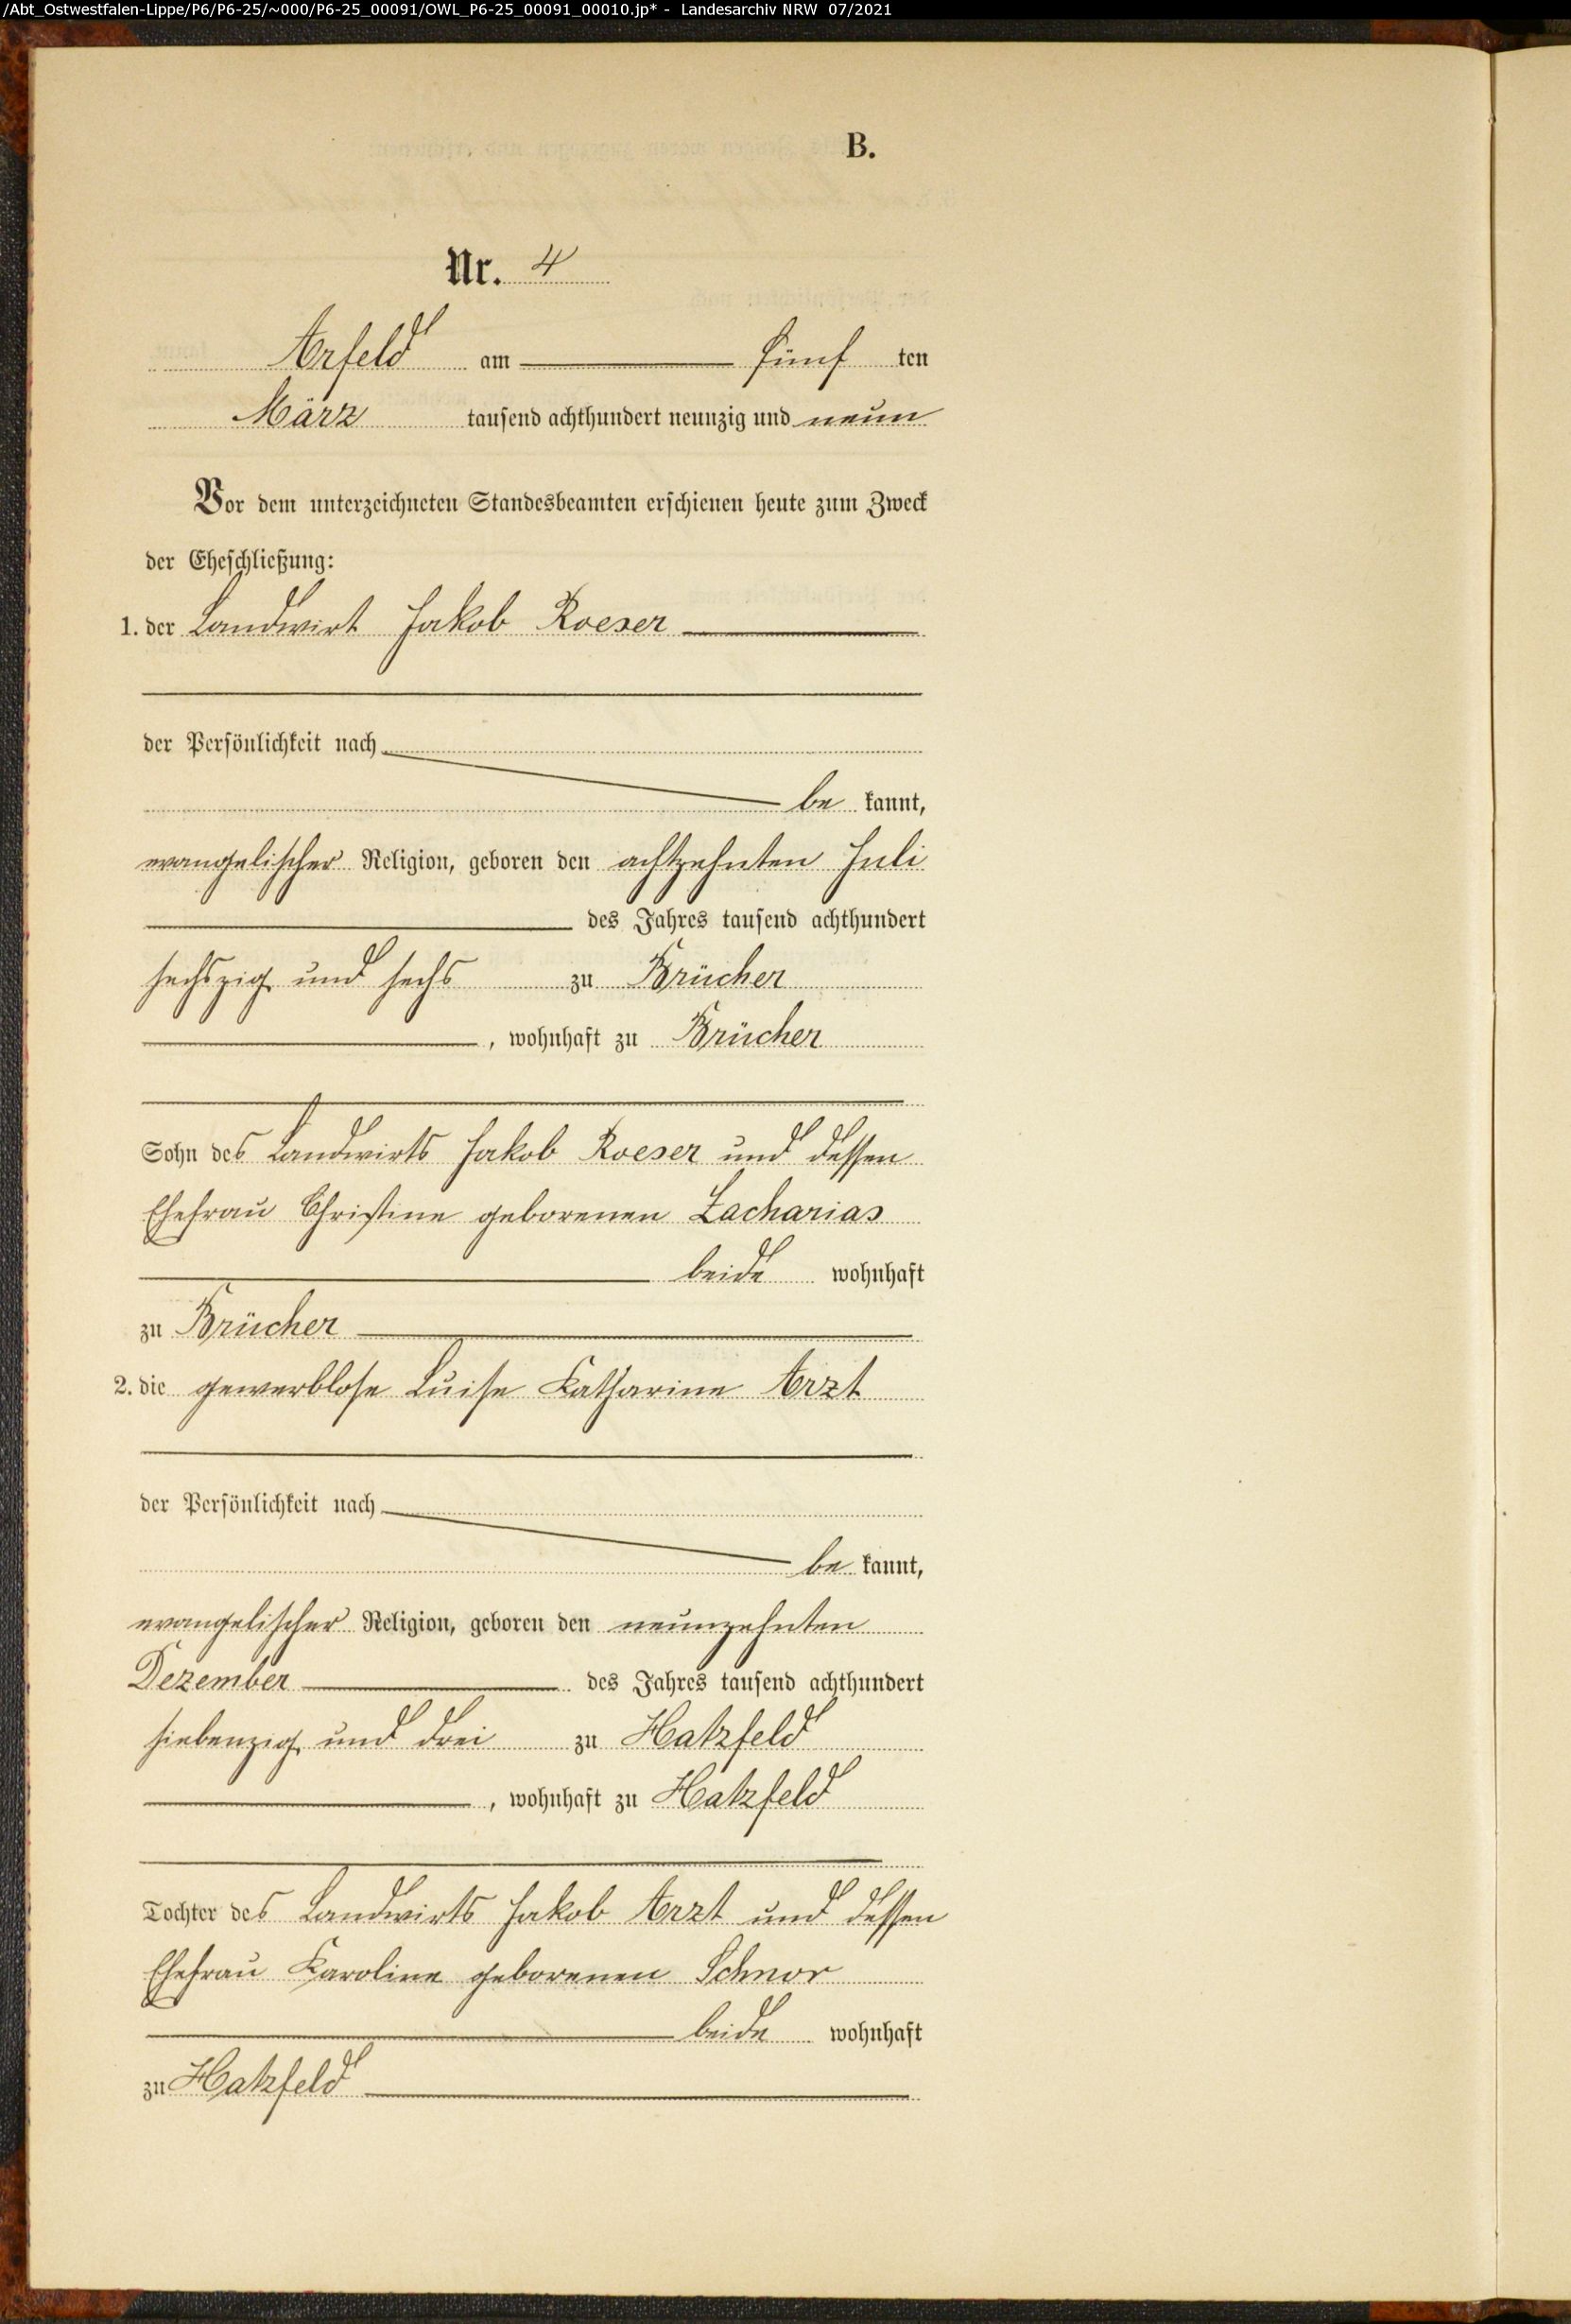 /Abt_Ostwestfalen-Lippe/P6/P6-25/~000/P6-25_00091/OWL_P6-25_00091_00010.jp* - Landesarchiv NRW 07/2021
B.
Nr. 4
Arfeld am fünf ten
März tausend achthundert neunzig und neun
Vor dem unterzeichneten Standesbeamten erschienen heute zum Zweck
der Eheschließung:
1. der Landwirt Jakob Roeser
der Persönlichkeit nach
be kannt,
evangelischer Religion, geboren den achtzehnten Juli
des Jahres tausend achthundert
sechszig und sechs zu Brücher
, wohnhaft zu Brücher
Sohn des Landwirts Jakob Roeser und dessen
Ehefrau Christine geborenen Zacharias
beide wohnhaft
zu Brücher
2. die gewerblose Luise Katharine Arzt
der Persönlichkeit nach
be kannt,
evangelischer Religion, geboren den neunzehnten
Dezember des Jahres tausend achthundert
siebenzig und drei zu Hatzfeld
, wohnhaft zu Hatzfeld
Tochter des Landwirts Jakob Arzt und dessen
Ehefrau Karoline geborenen Schnor
beide wohnhaft
zu Hatzfeld